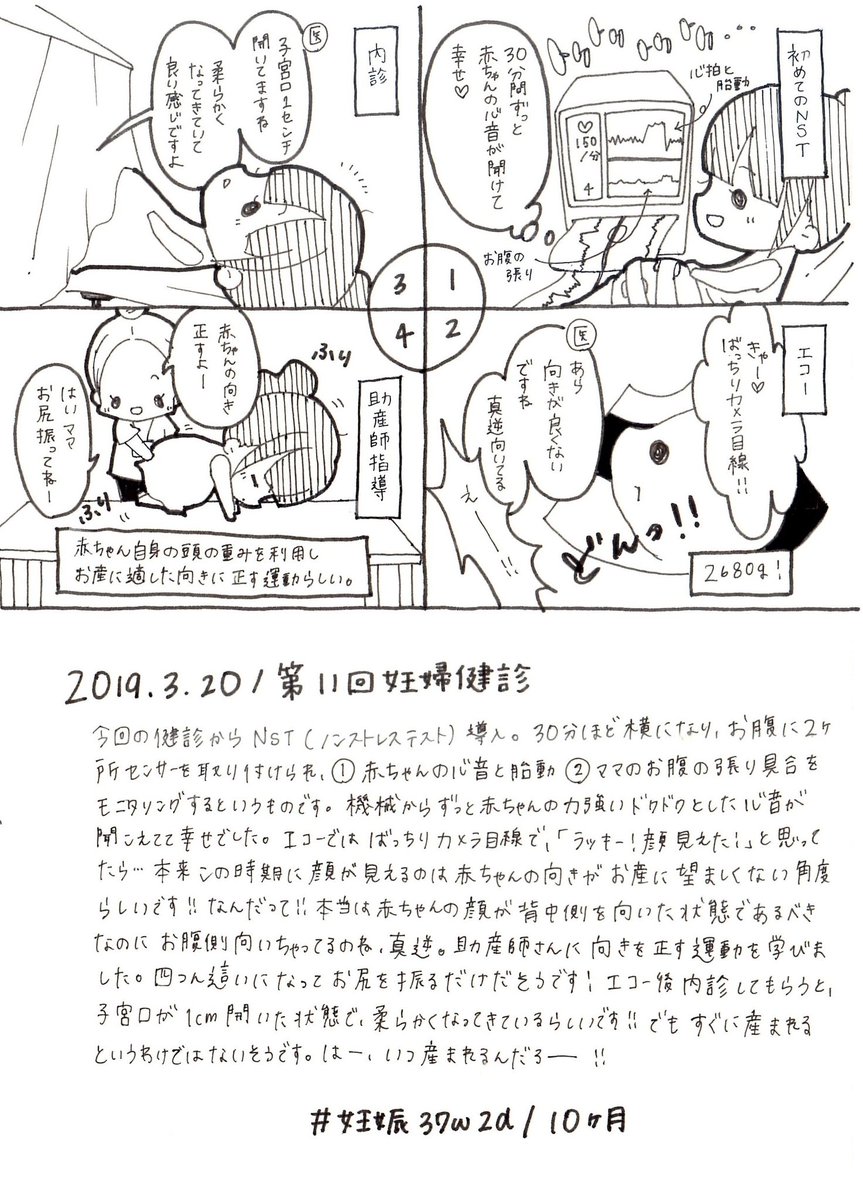 初めてのNST
心拍と
胎動
30分間ずっと
赤ちゃんの心音が聞けて
幸せ♡
♡
150
/分
4
お腹の
張り
1
エコー
きゃー♡
ばっちりカメラ目線!!
医
あら
向きが良くない
ですね
真逆向いてる
え──!!
どんっ!!
2680g!
2
内診
医
子宮口1センチ
開いてますね
柔らかく
なってきていて
良い感じですよ
3
助産師指導
赤ちゃんの向き
正すよー
はいママ
お尻振ってねー
ふり
ふり
赤ちゃん自身の頭の重みを利用し
お産に適した向きに正す運動らしい。
4
2019.3.20/第11回妊婦健診
今回の健診からNST(ノンストレステスト)導入。30分ほど横になり、お腹に2ヶ
所センサーを取り付けられ、①赤ちゃんの心音と胎動②ママのお腹の張り具合を
モニタリングするというものです。機械からずっと赤ちゃんの力強いドクドクとした心音が
聞こえてて幸せでした。エコーではばっちりカメラ目線で、「ラッキー!顔見えた!」と思って
たら…本来この時期に顔が見えるのは赤ちゃんの向きがお産に望ましくない角度
らしいです!!なんだって!!本当は赤ちゃんの顔が背中側を向いた状態であるべき
なのにお腹側向いちゃってるのね、真逆。助産師さんに向きを正す運動を学びま
した。四つん這いになってお尻を振るだけだそうです!エコー後内診してもらうと、
子宮口が1cm開いた状態で、柔らかくなってきているらしいです!!でもすぐに産まれる
というわけではないそうです。はー、いつ産まれるんだろー!!
#妊娠37w2d/10ヶ月